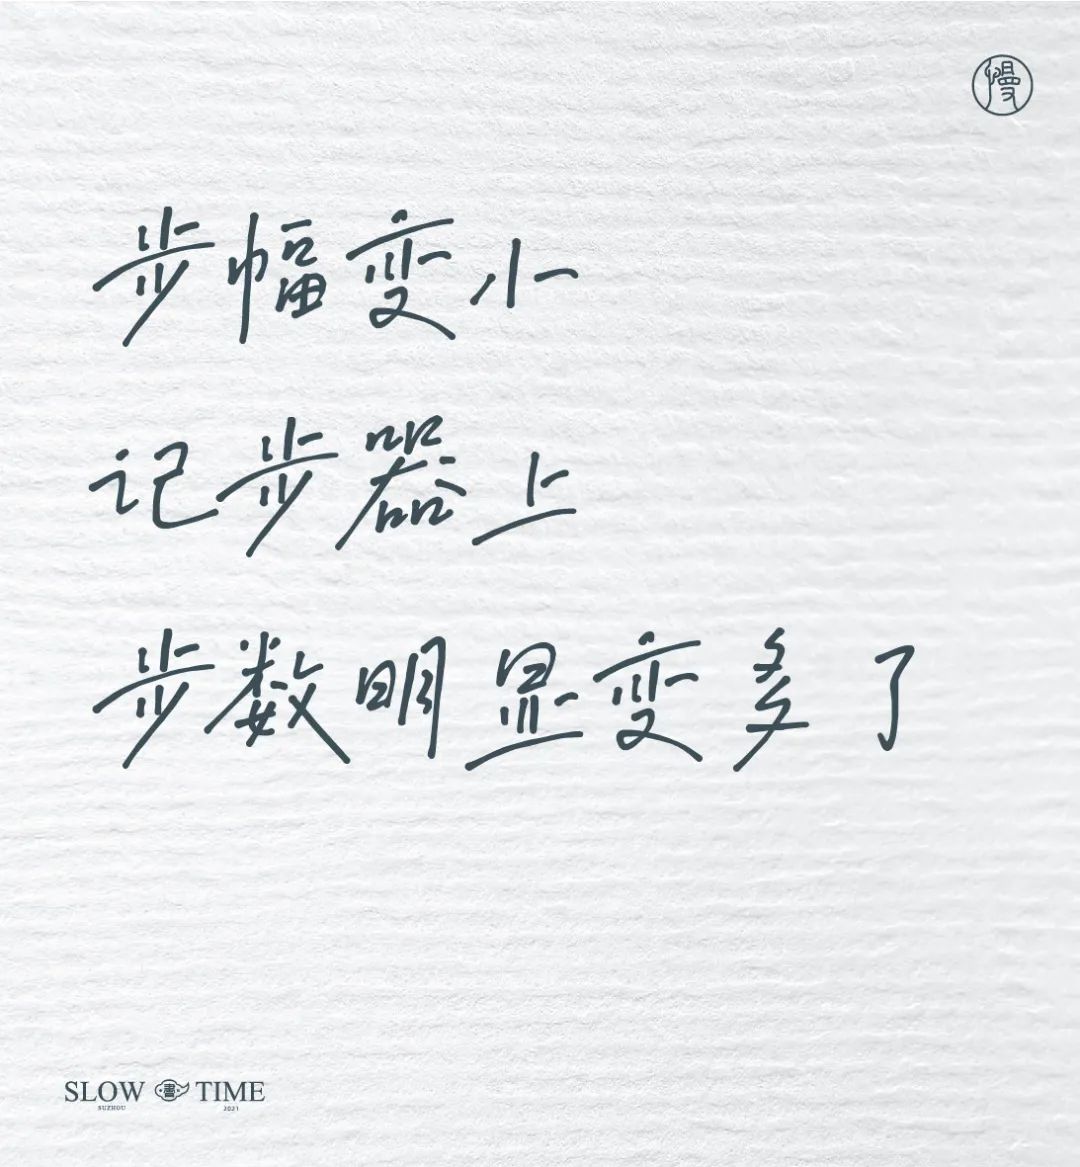 慢
步幅变小
记步器上
步数明显变多了
SLOW 書 TIME
SUZHOU 2021